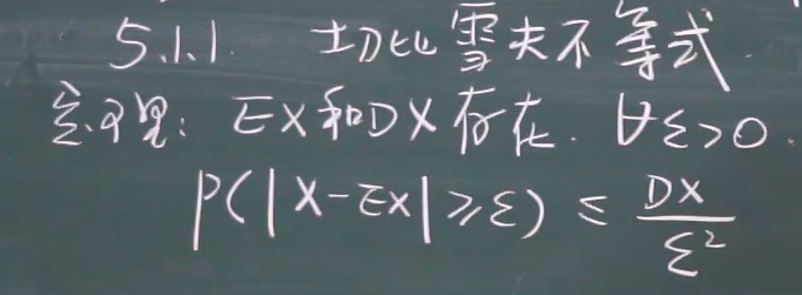 5.1.1. 切比雪夫不等式.
定理: EX和DX存在. ∀ε>0.
P(|X-EX|≥ε) ≤ DX/ε²